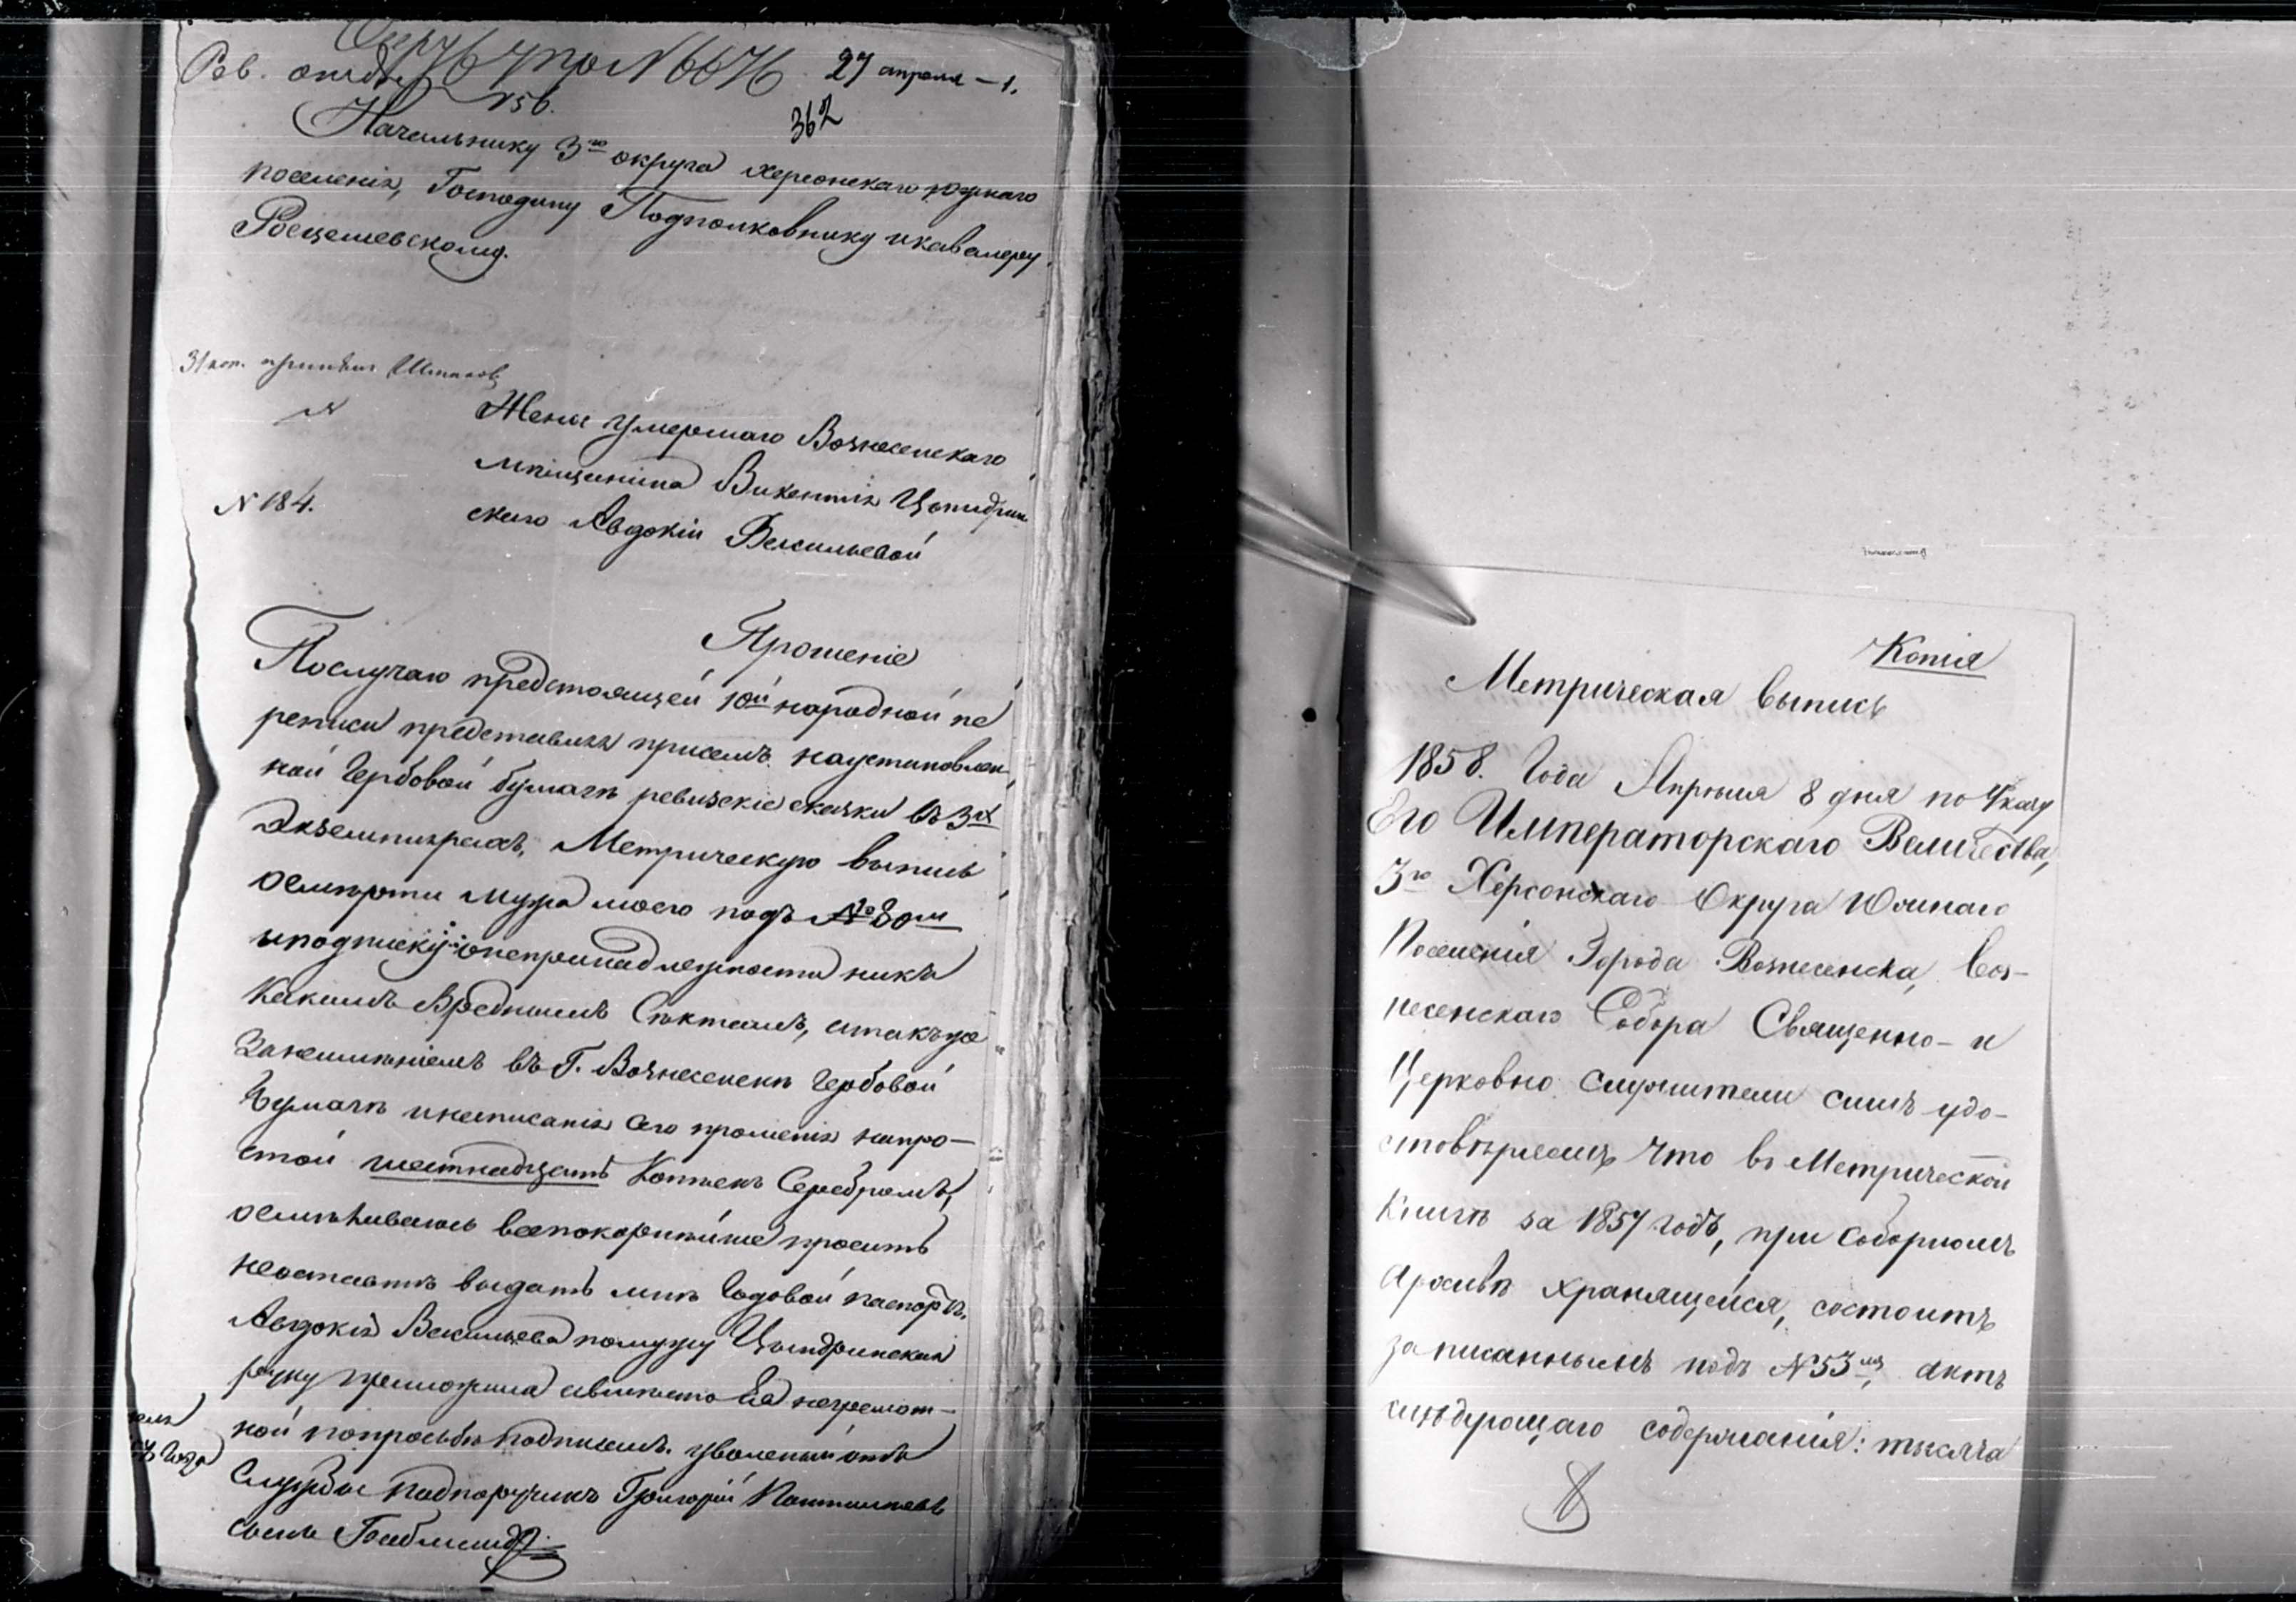 Рев. отд.
27 апреля — 1.
362
Начальнику 3го округа Херсонскаго южнаго
поселенія, Господину Подполковнику и кавалеру
Росцешевскому.
Жены умершаго Вознесенскаго
мѣщанина Викентія Цындрин
скаго Авдокіи Васильевой
N 184.
Прошеніе
Послучаю предстоящей 10й народной пе
реписи представляя присемъ наустановлен
ной гербовой бумагѣ ревизскіе сказки въ 3х
Экземплярахъ, Метрическую выпись
осмерти мужа моего подъ №80м
иподписку онепринадлежности ника
какимъ Вреднымъ Сѣктамъ, атакъже
Занеимѣніемъ въ Г. Вознесенскѣ Гербовой
бумаги инаписанія сего прошенія напро-
стой шестнадцать Копѣекъ Серебромъ,
осмѣливаюсь всепокорнѣйше просить
неоставить выдать мнѣ годовой паспортъ.
Авдокія Васильева помужу Цындринская
руку приложила авмѣсто Ея неграмот-
ной попросьбѣ подписалъ. уволеный отъ
Службы подпоручикъ Григорій
сынъ
Копія
Метрическая выпись
1858. Года Апрѣля 8 дня по Указу
Его Императорскаго Величества,
3го Херсонскаго Округа Южнаго
Поселенія Города Вознесенска, Воз-
несенскаго Собора Священно- и
Церковно служители симъ удо-
стовѣряемъ что въ Метрической
Книгѣ за 1857 годъ, при Соборномъ
Архивѣ хранящейся, состоитъ
записаннымъ подъ N53мъ, актъ
слѣдующаго содержанія: тысяча